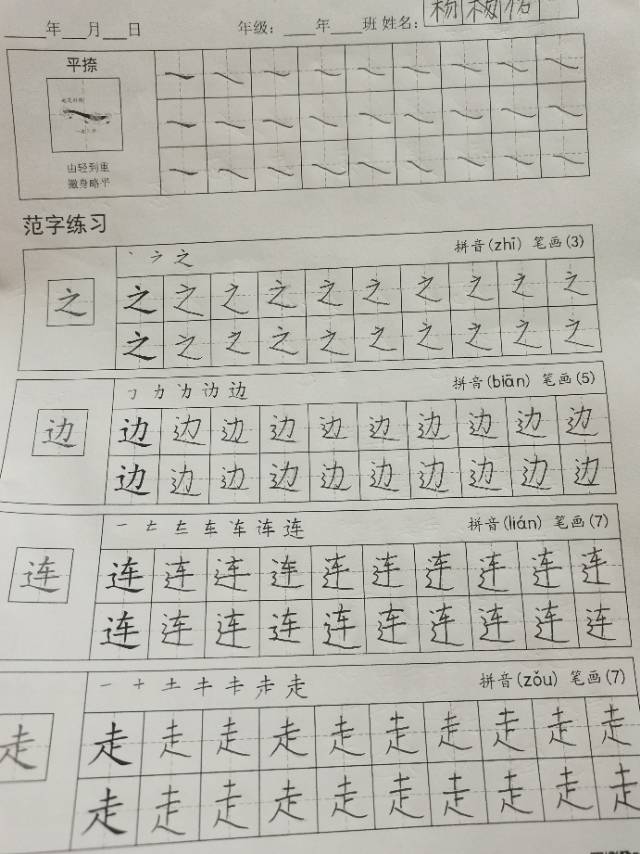 年 月 日 年级： 年 班 姓名： 杨
平捺
由轻到重
撇身略平
范字练习
丶 之 拼音(zhī) 笔画(3)
之 之 之 之 之 之 之 之 之 之 之
之 之 之 之 之 之 之 之 之 之
边 拼音(biān) 笔画(5)
边 边 边 边 边 边 边 边 边 边 边
边 边 边 边 边 边 边 边 边 边
一 车 连 拼音(lián) 笔画(7)
连 连 连 连 连 连 连 连 连 连 连
连 连 连 连 连 连 连 连 连 连
一 十 土 走 拼音(zǒu) 笔画(7)
走 走 走 走 走 走 走 走 走 走 走
走 走 走 走 走 走 走 走 走 走